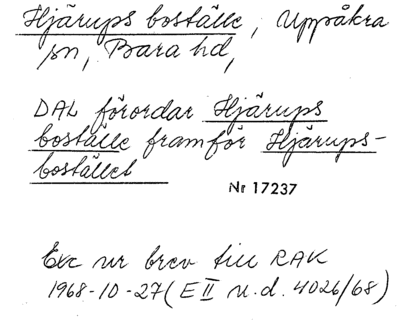 Hjärups boställe, Uppåkra
sn, Bara hd,
DAL förordar Hjärups
boställe framför Hjärups-
bostället
Nr 17237
Exc ur brev till RAK
1968-10-27 (E II u.d. 4026/68)